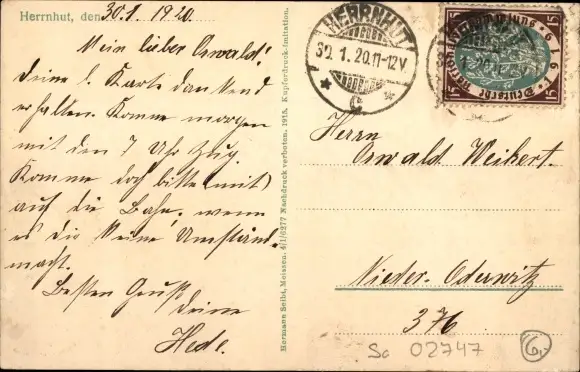 Herrnhut, den 30.1.1920.
Mein lieber Oswald!
Deine l. Karte dankend
erhalten. Komme morgen
mit dem 7 Uhr Zug.
Komme doch bitte (mit)
auf die Bahn, wenn
es dir keine Umständ-
macht.
Besten Gruß
Deine
Hede.
Hermann Seibt, Meissen. 4/1/6277 Nachdruck verboten. 1915. Kupferdruck-Imitation.
HERRNHUT
30.1.20.11-12V
* c *
15 Deutsche Nationalversammlung 1919 15
Herrn
Oswald Weikert.
Nieder Oderwitz
376
Sa 02747
6,